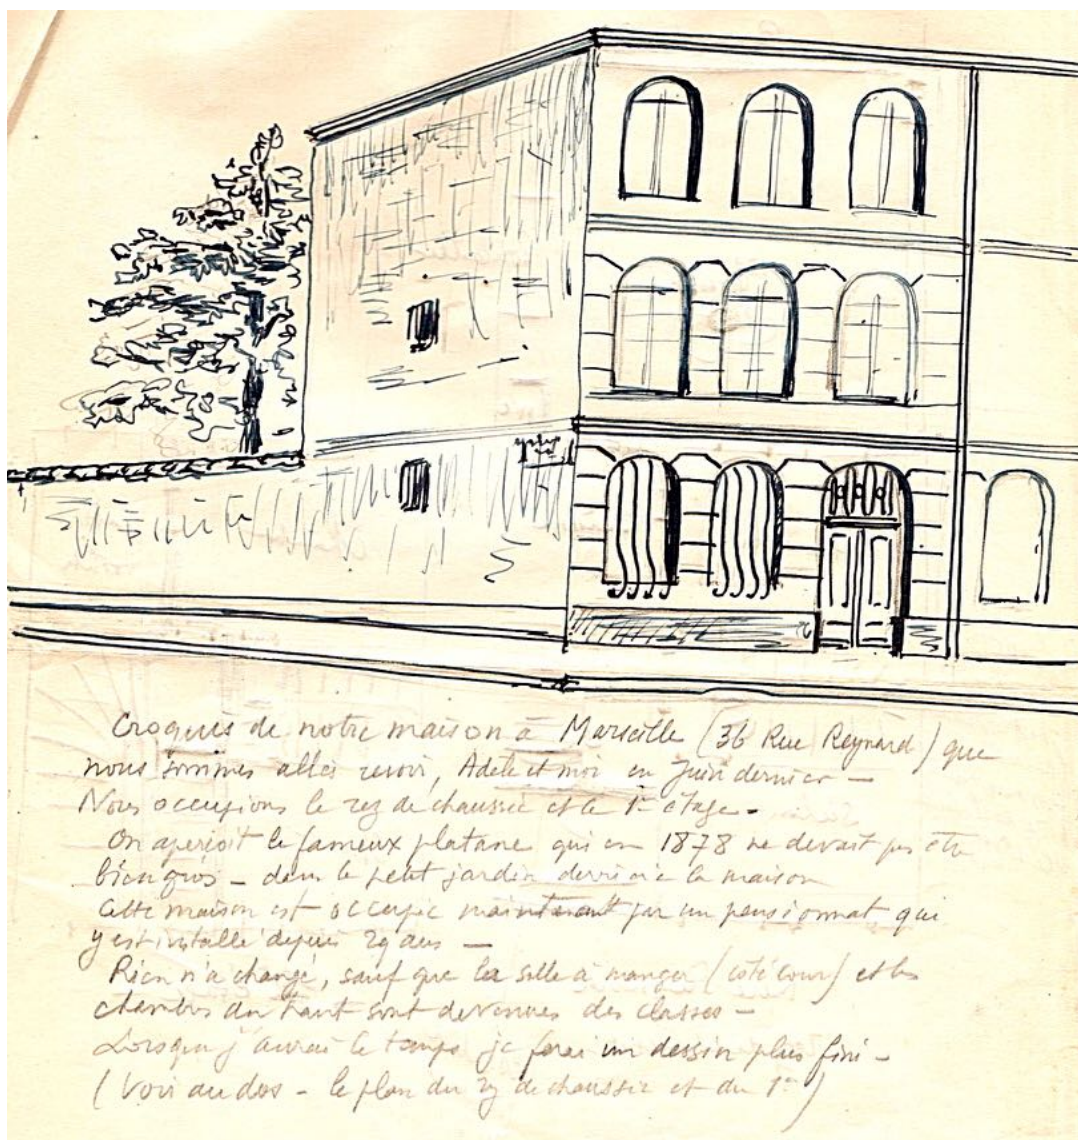 Croquis de notre maison à Marseille (36 Rue Reynard) que
nous sommes allés revoir, Adèle et moi en Juin dernier —
Nous occupions le rez de chaussée et le 1er étage -
On aperçoit le fameux platane qui en 1878 ne devait pas être
bien gros - dans le petit jardin derrière la maison
Cette maison est occupée maintenant par un pensionnat qui
y est installé depuis 29 ans —
Rien n'a changé, sauf que la salle à manger (côté cour) et les
chambres du haut sont devenues des classes -
Lorsque j'aurai le temps je ferai un dessin plus fini -
(Voir au dos - le plan du rez de chaussée et du 1er)